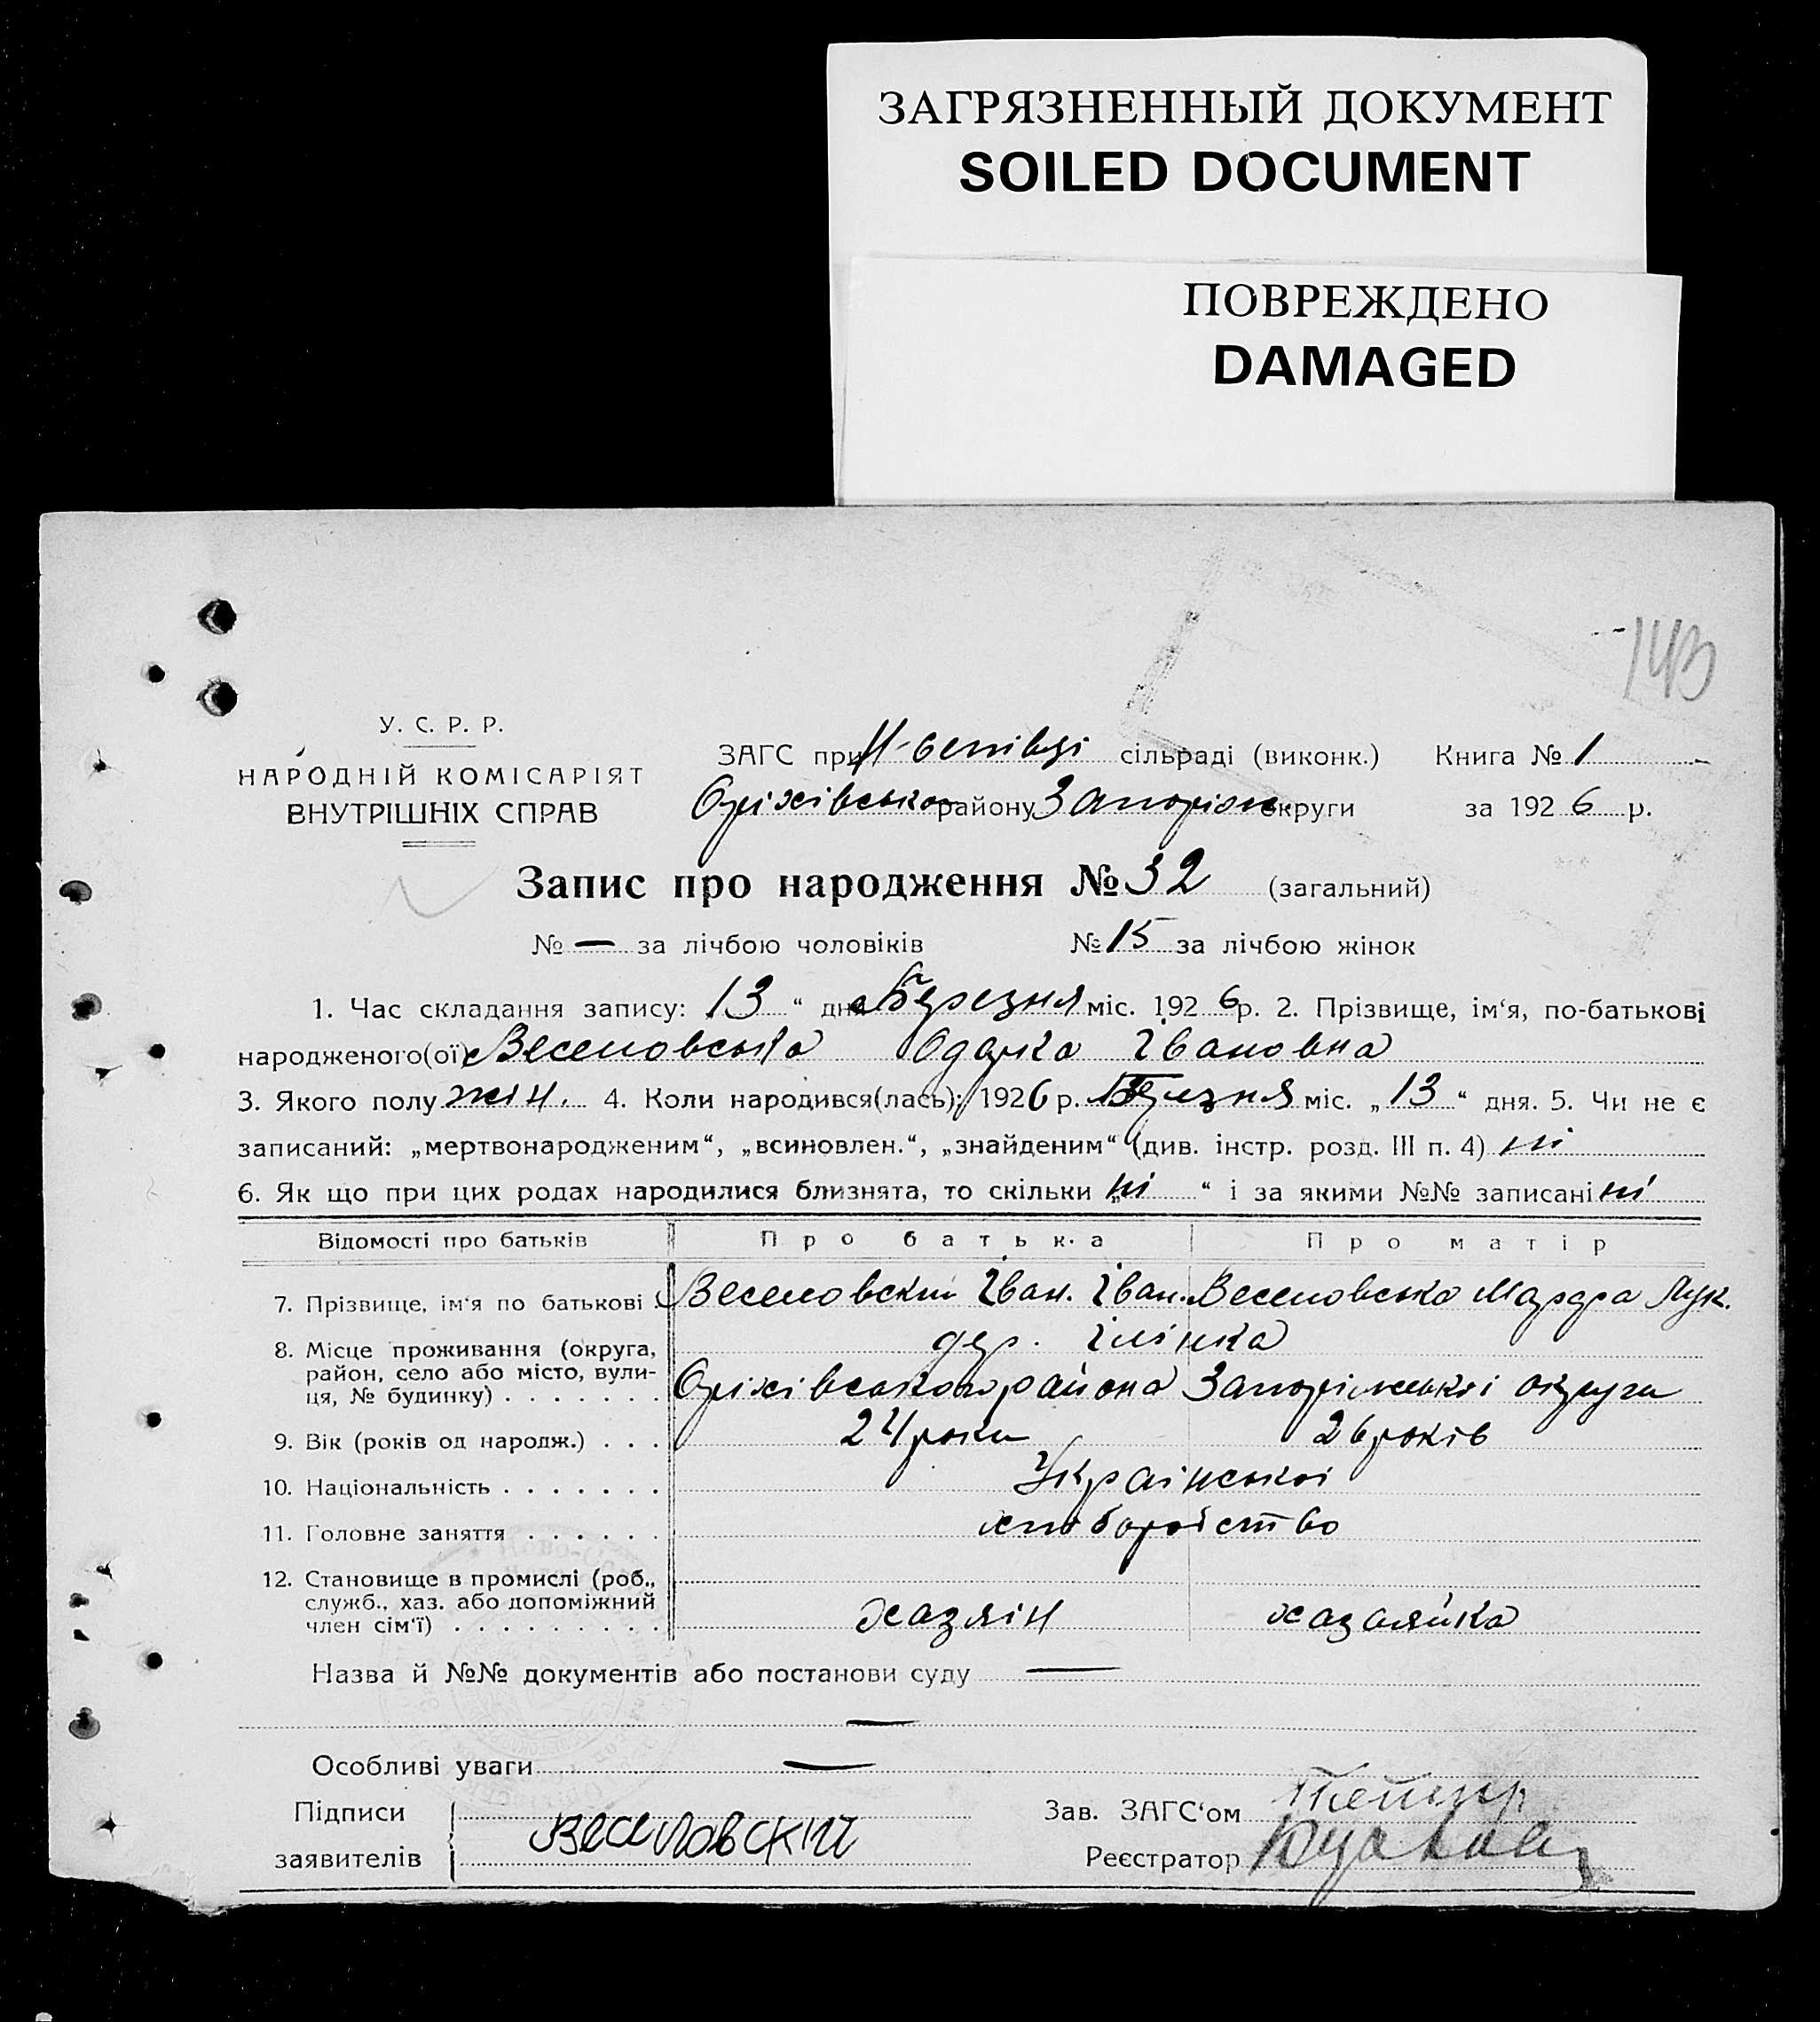 ЗАГРЯЗНЕННЫЙ ДОКУМЕНТ
SOILED DOCUMENT
ПОВРЕЖДЕНО
DAMAGED
143
У. С. Р. Р.
НАРОДНІЙ КОМІСАРІЯТ
ВНУТРІШНІХ СПРАВ
ЗАГС при сільраді (виконк.) Книга № 1
Оріхівського району Запоріж округи за 1926 р.
Запис про народження № 32 (загальний)
№ — за лічбою чоловіків № 15 за лічбою жінок
1. Час складання запису: 13 “ дня Березня міс. 1926 р. 2. Прізвище, ім‘я, по-батькові
народженого(ої) Веселовська Одарка Івановна
3. Якого полу жін. 4. Коли народився(лась): 1926 р. Березня міс. „ 13 “ дня. 5. Чи не є
записаний: „мертвонародженим“, „всиновлен.“, „знайденим“ (див. інстр. розд. III п. 4) ні
6. Як що при цих родах народилися близнята, то скільки ні “ і за якими №№ записані ні
Відомості про батьків Про батька Про матір
7. Прізвище, ім‘я по батькові Веселовский Іван. Іван. Веселовська Лук.
8. Місце проживання (округа, дер. Ілінка
район, село або місто, вули-
ця, № будинку) . . . . . . . Оріхівського района Запоріжської округи
9. Вік (років од народж.) . . . 24 роки 26 років
10. Національність . . . . . . . Української
11. Головне заняття . . . . . . хліборобство
12. Становище в промислі (роб.,
служб., хаз. або допоміжний
член сім‘ї) . . . . . . . . . хазяін хазяйка
Назва й №№ документів або постанови суду —
—
Особливі уваги —
Підписи
заявителів Веселовский
Зав. ЗАГС‘ом
Реєстратор